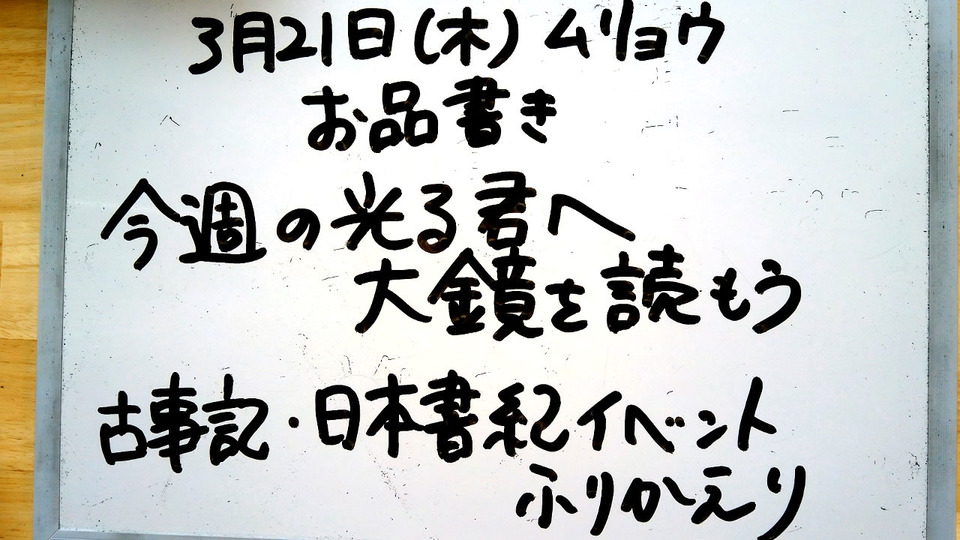 3月21日(木) ムリョウ
お品書き
今週の光る君へ
大鏡を読もう
古事記・日本書紀イベント
ふりかえり